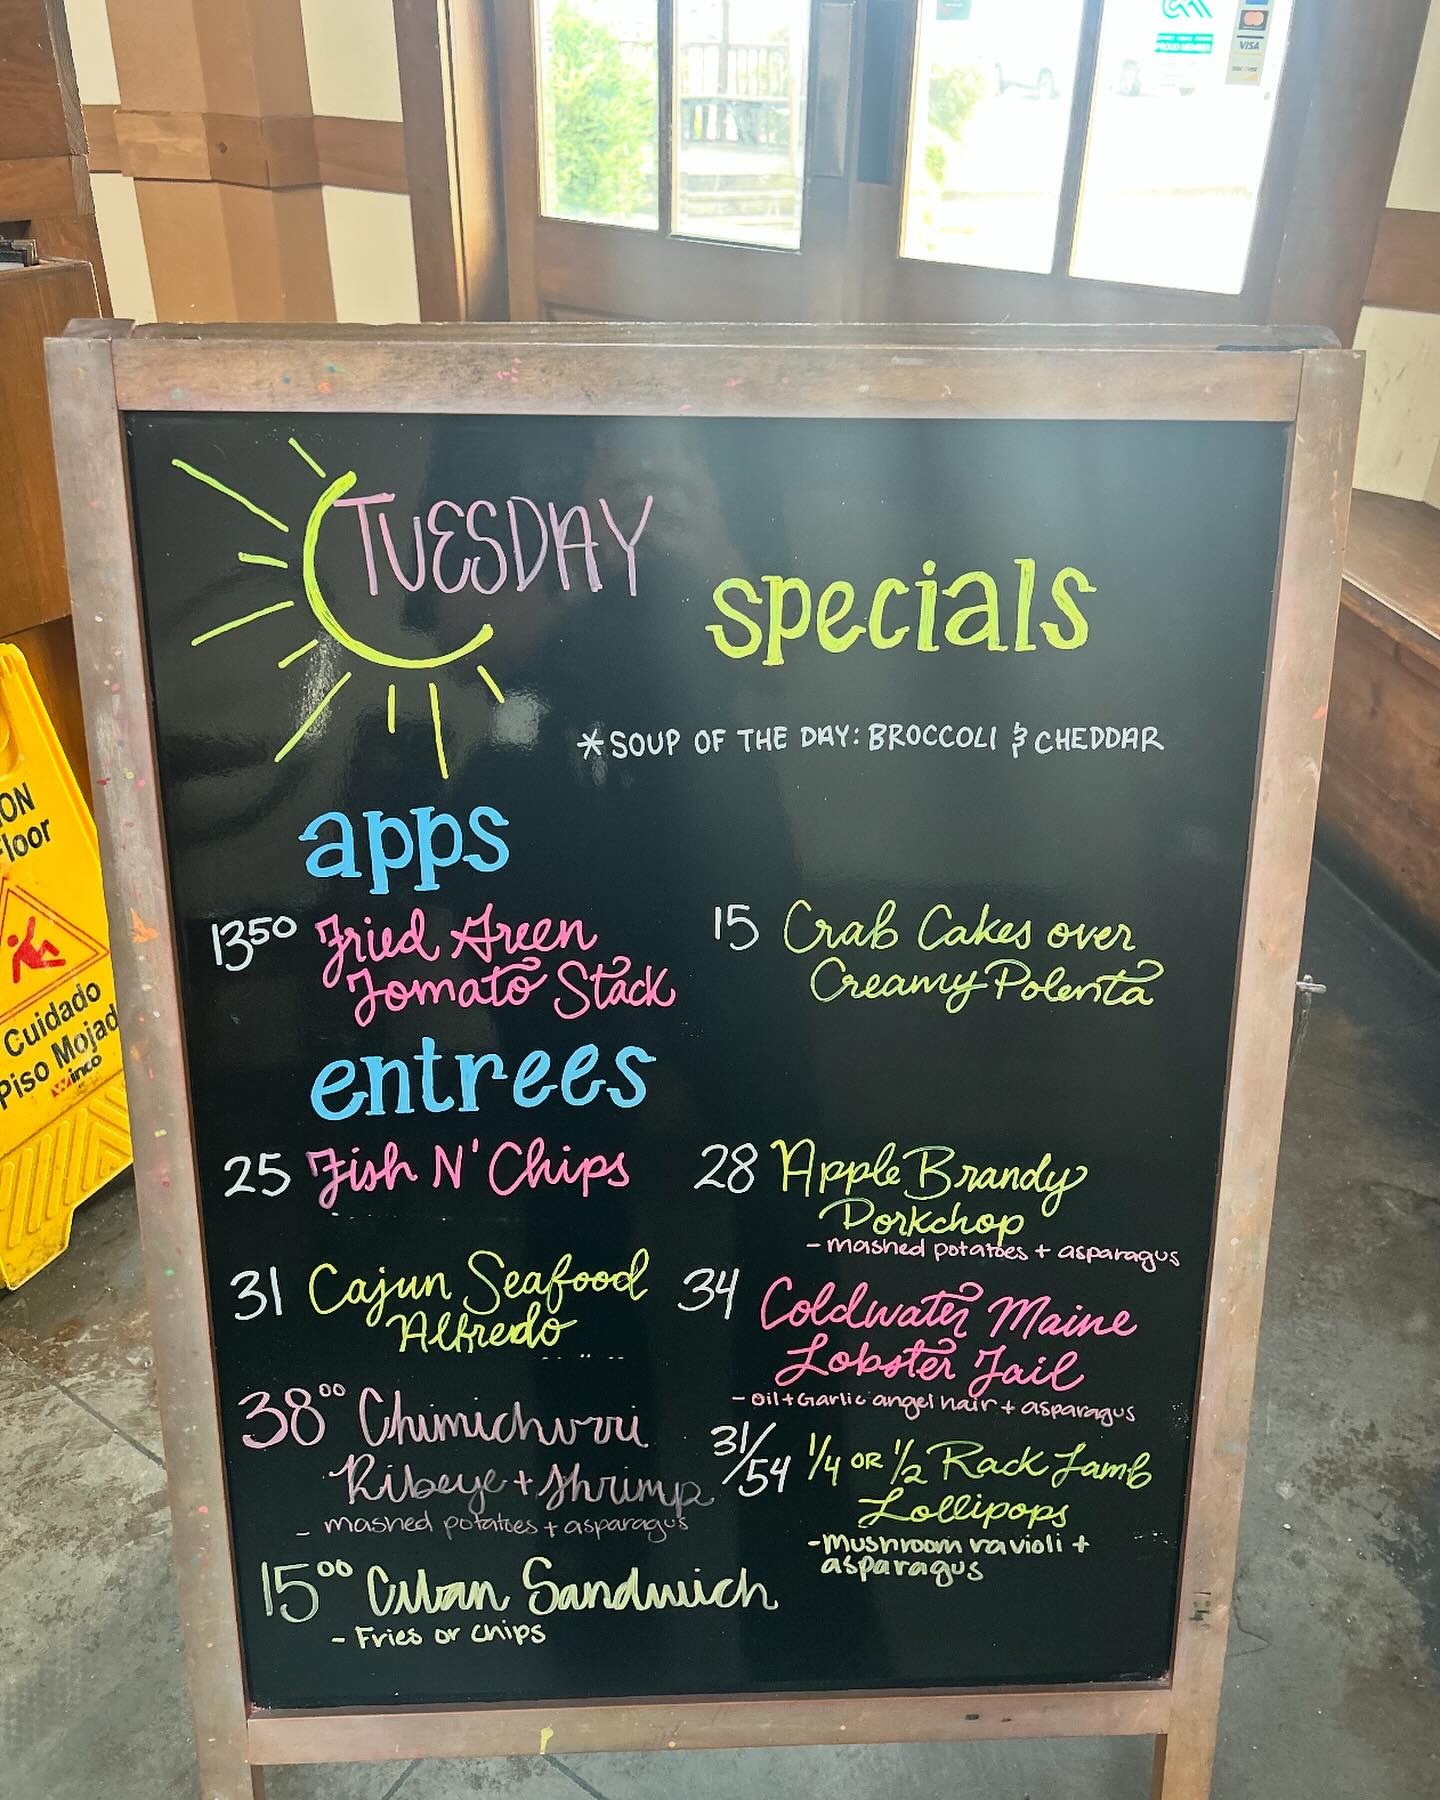 VISA
PROUD MEMBER
TUESDAY
specials
*SOUP OF THE DAY: BROCCOLI & CHEDDAR
apps
13⁵⁰ Fried Green
Tomato Stack
15 Crab Cakes over
Creamy Polenta
entrees
25 Fish N' Chips
28 Apple Brandy
Porkchop
- mashed potatoes + asparagus
31 Cajun Seafood
Alfredo
34 Coldwater Maine
Lobster Tail
- Oil + Garlic angel hair + asparagus
38⁰⁰ Chimichurri
Ribeye + Shrimp
- mashed potatoes + asparagus
31/54 1/4 OR 1/2 Rack Lamb
Lollipops
- mushroom ravioli +
asparagus
15⁰⁰ Cuban Sandwich
- Fries or chips
ION
Floor
Cuidado
Piso Mojad
Winco